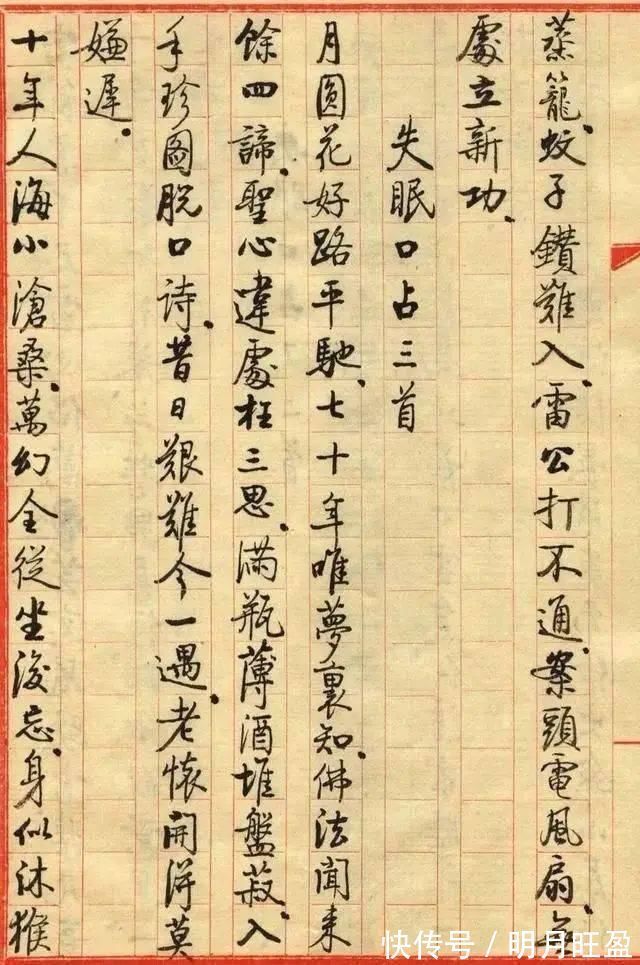 蒸籠蚊子鑽難入雷公打不通案頭電風扇無
處立新功
失眠口占三首
月圓花好路平馳七十年唯夢裏知佛法聞來
餘四諦聖心違處枉三思滿瓶薄酒堆盤菽入
手珍圖脫口詩昔日艱難今一遇老懷開得莫
嫌遲
十年人海小滄桑萬幻全從坐後忘身似沐猴
快传号/明月旺盈